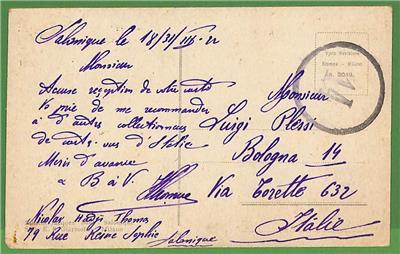 Salonique le 18/31/III-22
Monsieur
Accuse réception de votre carte
Vs prie de me recommander
à d'autres collectionneurs
de cartes-vues d'Italie
Merci d'avance
a B à V.
Nicolas Hadji Thomas
79 Rue Reine Sophie
Salonique
Monsieur
Luigi Plessi
Bologna 14
Via Torette 632
Italie